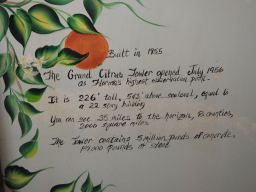 Built in 1955
The Grand Citrus Tower opened July 1956
as Florida's highest observation point.
It is 226' tall, 543' above sea level, equal to
a 22 story building
You can see 35 miles to the horizon, 8 counties,
2000 square miles
The Tower contains 5 million pounds of concrete,
149,000 pounds of steel